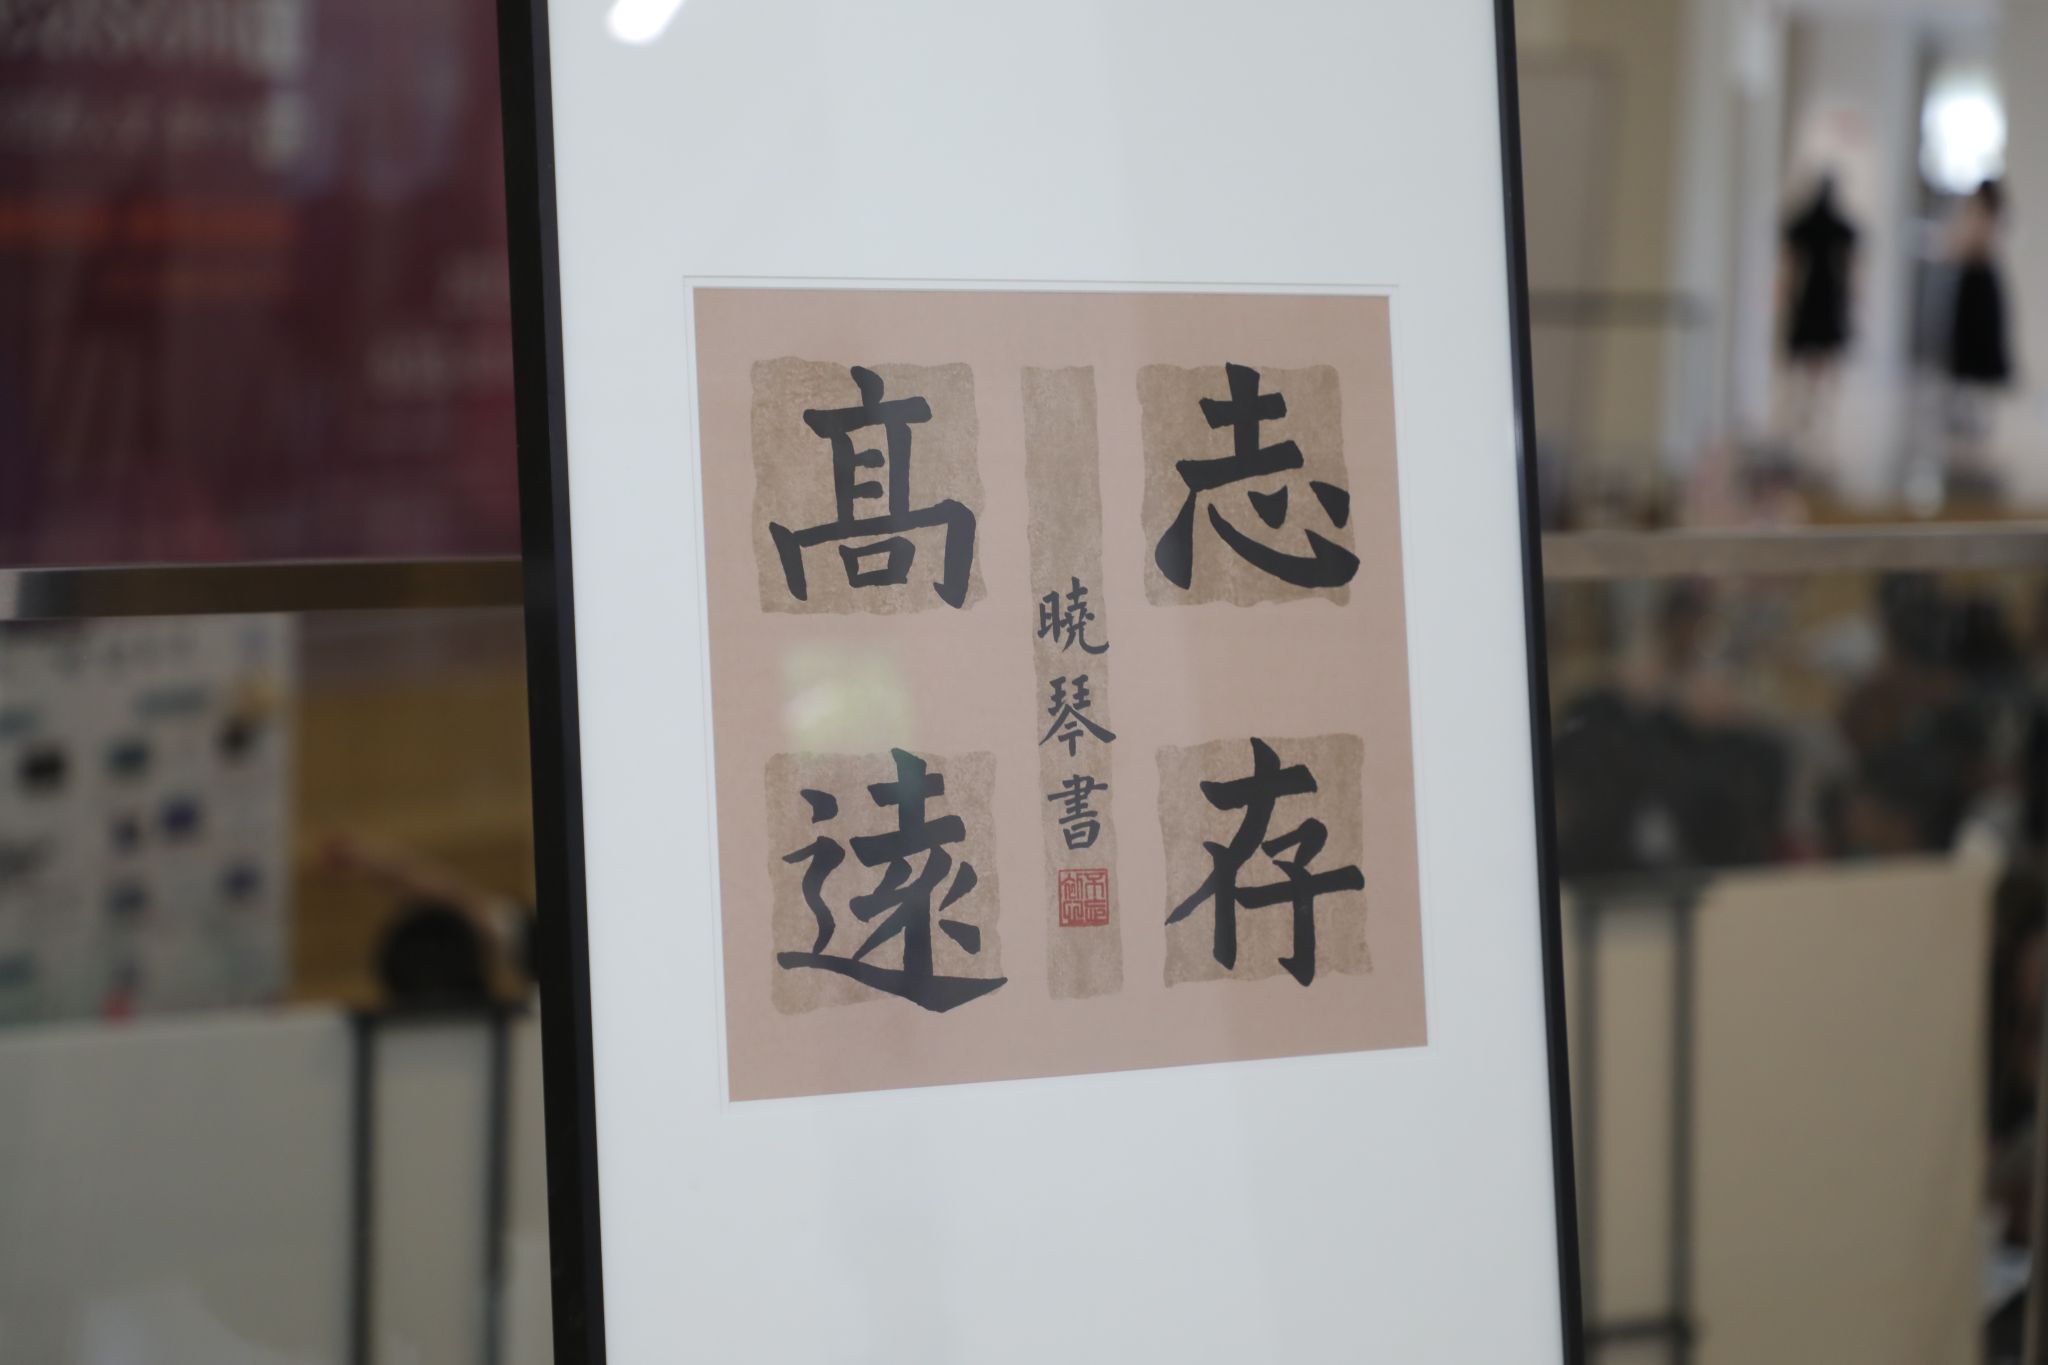 志存
高遠
曉琴書